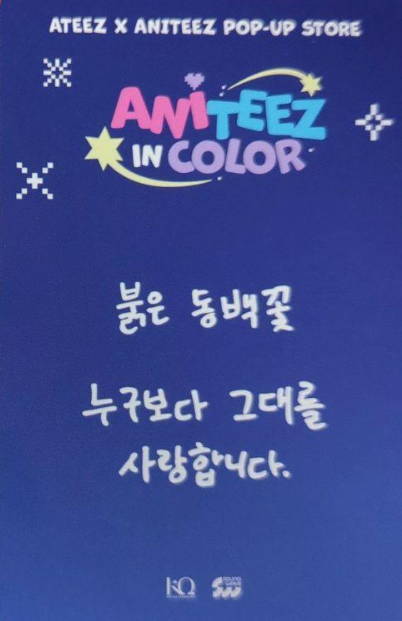 ATEEZ X ANITEEZ POP-UP STORE
ANITEEZ
IN COLOR
붉은 동백꽃
누구보다 그대를
사랑합니다.
KQ